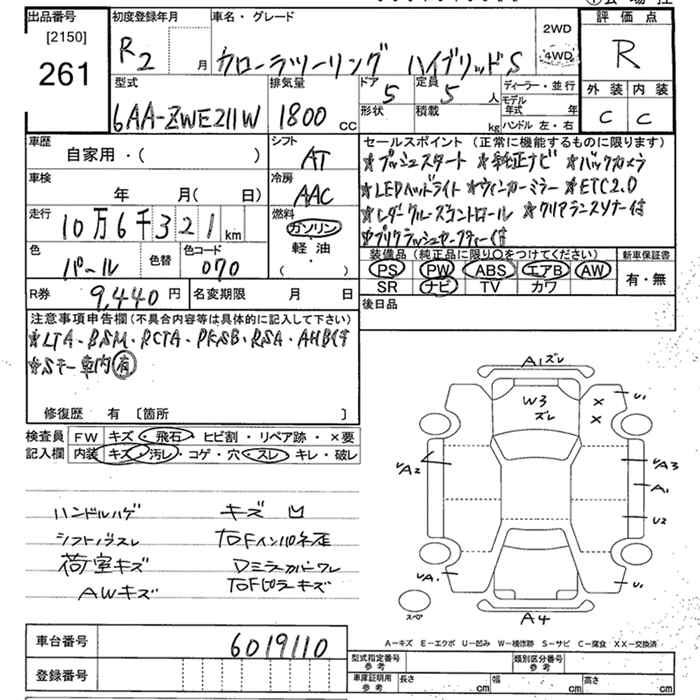 出品番号
[2150]
261
初度登録年月
R2 月
車名・グレード
カローラツーリング ハイブリッドS
2WD
4WD
評価点
R
外装 内装
C C
型式
6AA-ZWE211W
排気量
1800 cc
ドア
5
形状
定員
5 人
積載
kg
ディーラー・並行
モデル年式 年
ハンドル 左・右
車歴
自家用・( )
シフト
AT
車検
年 月( 日)
冷房
AAC
走行
10万6千321 km
燃料
ガソリン
軽油
・( )
色
パール
色替
色コード
070
セールスポイント (正常に機能するものに限ります)
★プッシュスタート ★純正ナビ ★バックカメラ
★LEDヘッドライト ★ウィンカーミラー ★ETC2.0
★レーダークルーズコントロール ★クリアランスソナー付
★プリクラッシュセーフティー付
装備品 (純正品に限り○をつけてください)
PS PW ABS エアB AW
SR ナビ TV カワ
新車保証書
有・無
後日品
R券 9,440 円
名変期限 月 日
注意事項申告欄(不具合内容等は具体的に記入して下さい)
★LTA・BSM・RCTA・PKSB・RSA・AHB付
★Sキー車内有
修復歴 有 〔箇所 〕
検査員記入欄
FW キズ・飛石・ヒビ割・リペア跡・×要
内装 キズ・汚レ・コゲ・穴・スレ・キレ・破レ
ハンドルハゲ キズ 凹
シフトノブスレ 右Fインパネ歪
荷室キズ Dミラーカバーワレ
AWキズ 右Fピラーキズ
A1ズレ
W3
ズレ
×
×
U1
A2
A3
A1
U2
A1
U1
スペア
A4
A-キズ E-エクボ U-凹み W-補修跡 S-サビ C-腐食 XX-交換済
車台番号 6019110
登録番号
型式指定番号
参考
類別区分番号
参考
車庫証明用
参考
長さ cm 幅 cm 高さ cm